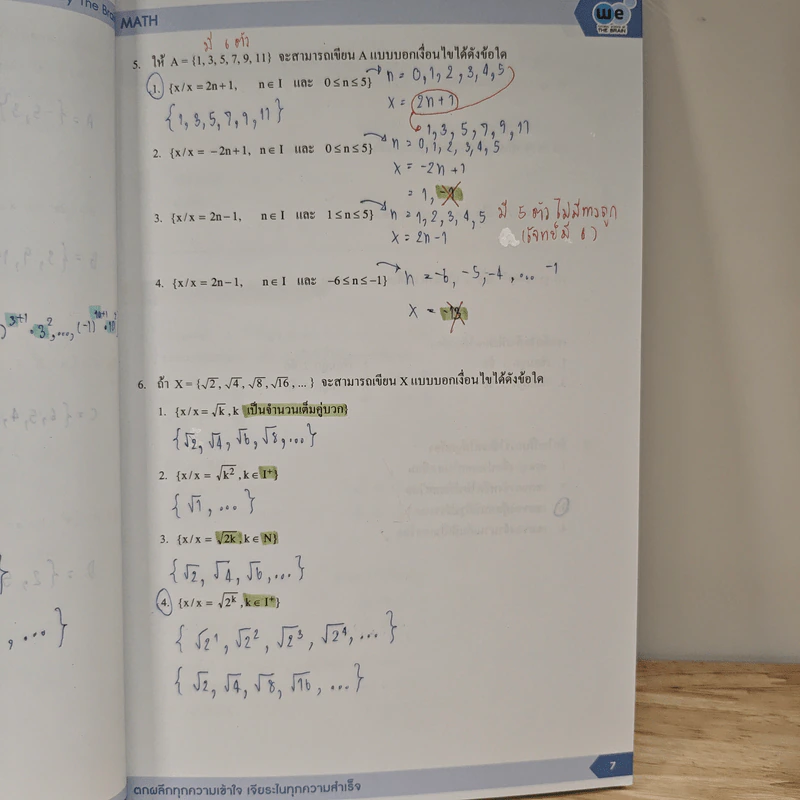 y The Brain
MATH
we
THE BRAIN
มี 6 ตัว
5. ให้ A = {1, 3, 5, 7, 9, 11} จะสามารถเขียน A แบบบอกเงื่อนไขได้ดังข้อใด
1. {x/x = 2n+1, n ∈ I และ 0 ≤ n ≤ 5} n = 0, 1, 2, 3, 4, 5
{1, 3, 5, 7, 9, 11} x = 2n+1
1, 3, 5, 7, 9, 11
2. {x/x = −2n+1, n ∈ I และ 0 ≤ n ≤ 5} n = 0, 1, 2, 3, 4, 5
x = -2n+1
= 1, -1
3. {x/x = 2n−1, n ∈ I และ 1 ≤ n ≤ 5} n = 1, 2, 3, 4, 5 มี 5 ตัว ไม่มีทางถูก
x = 2n-1 (โจทย์มี 6)
4. {x/x = 2n−1, n ∈ I และ −6 ≤ n ≤ −1} n = -6, -5, -4, ... -1
x = -13
6. ถ้า X = {√2, √4, √8, √16, ...} จะสามารถเขียน X แบบบอกเงื่อนไขได้ดังข้อใด
1. {x/x = √k, k เป็นจำนวนเต็มคู่บวก}
{√2, √4, √6, √8, ...}
2. {x/x = √k², k ∈ I⁺}
{√1, ...}
3. {x/x = √2k, k ∈ N}
{√2, √4, √6, ...}
4. {x/x = √2ᵏ, k ∈ I⁺}
{√2¹, √2², √2³, √2⁴, ...}
{√2, √4, √8, √16, ...}
, ... }
7
ตกผลึกทุกความเข้าใจ เจียระไนทุกความสำเร็จ